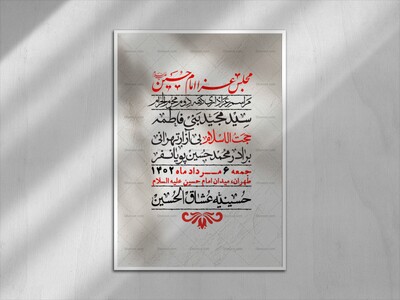 مجلس عزا امام حسین
مراسم عزاداری دهه دوم محرم الحرام
سید مجید بنی فاطمه
حجت السلام بی آزار تهرانی
برادر محمد حسین پویانفر
جمعه ۶ مرداد ماه ۱۴۰۲
طهران، میدان امام حسین علیه السلام
حسینیه عشاق الحسین